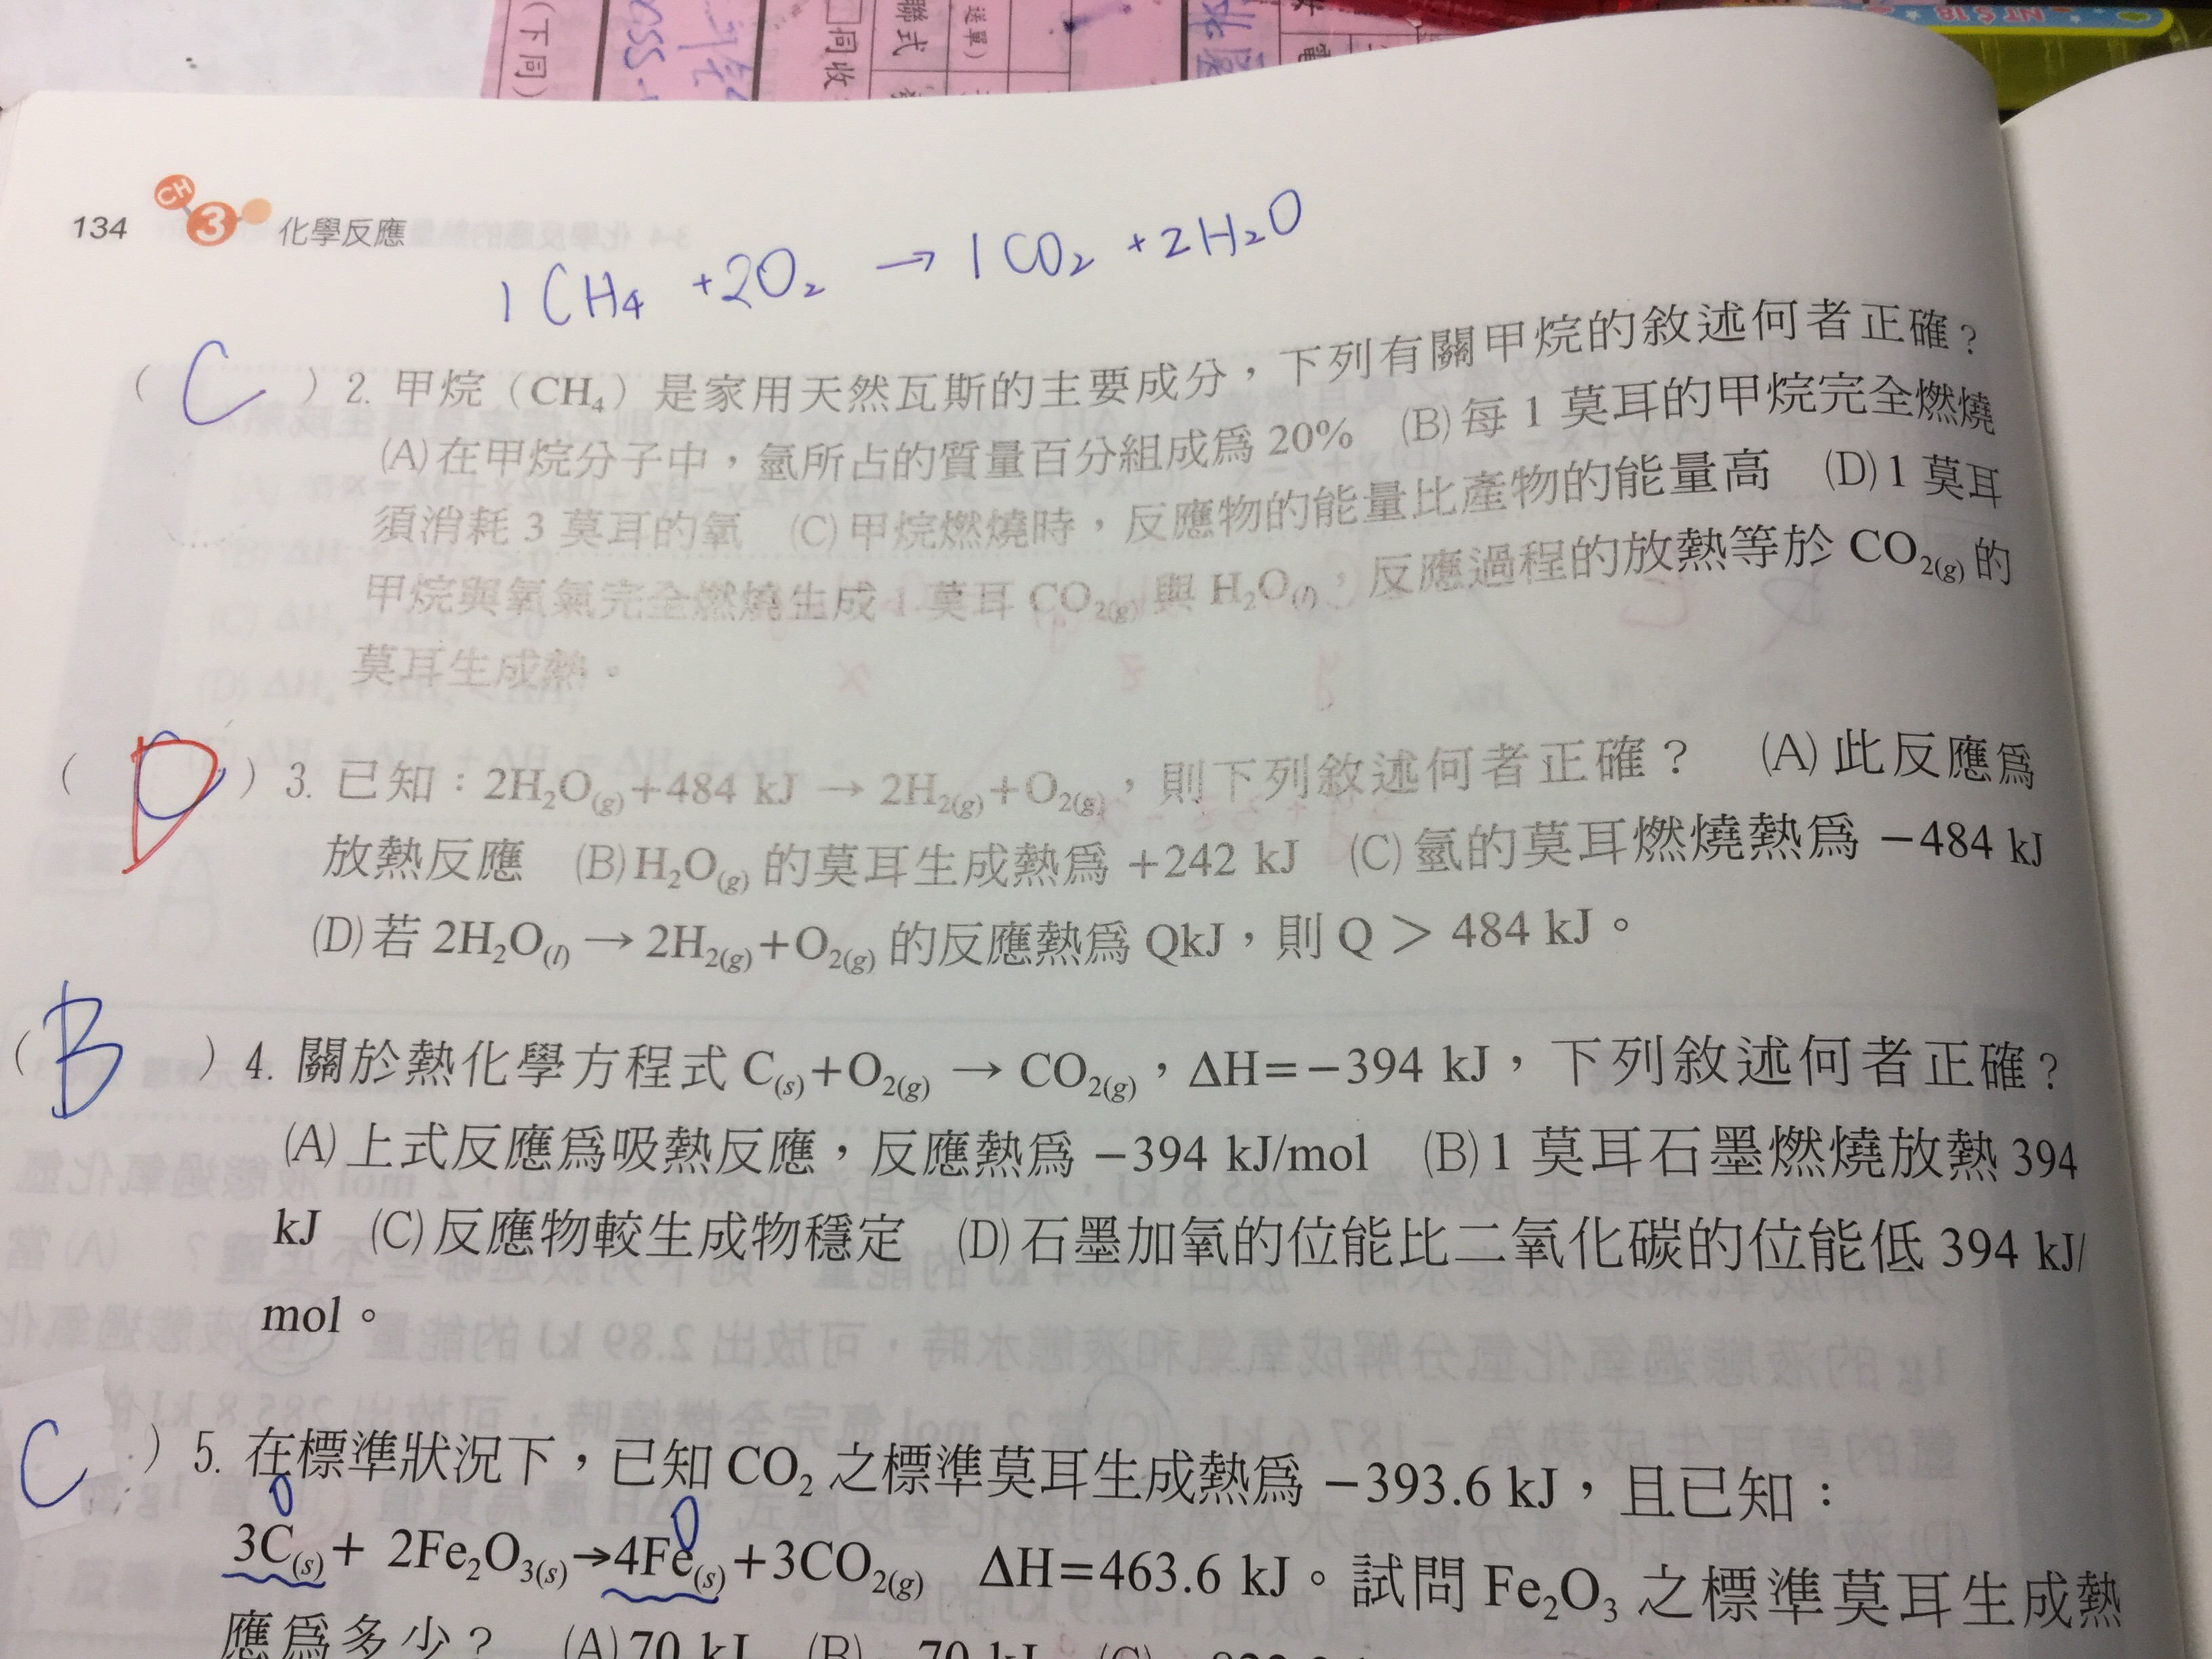 (下同)
同收
聯式
送單)
NT$18
134 CH 3 化學反應
1CH4 +2O2 → 1CO2 +2H2O
( C ) 2. 甲烷(CH4)是家用天然瓦斯的主要成分,下列有關甲烷的敘述何者正確?
(A)在甲烷分子中,氫所占的質量百分組成爲 20% (B)每 1 莫耳的甲烷完全燃燒
須消耗 3 莫耳的氧 (C)甲烷燃燒時,反應物的能量比產物的能量高 (D)1 莫耳
甲烷與氧氣完全燃燒生成 1 莫耳 CO2(g) 與 H2O(l),反應過程的放熱等於 CO2(g) 的
莫耳生成熱。
( D ) 3. 已知:2H2O(g)+484 kJ → 2H2(g)+O2(g),則下列敘述何者正確? (A)此反應爲
放熱反應 (B)H2O(g) 的莫耳生成熱爲 +242 kJ (C)氫的莫耳燃燒熱爲 −484 kJ
(D)若 2H2O(l) → 2H2(g)+O2(g) 的反應熱爲 QkJ,則 Q > 484 kJ。
( B ) 4. 關於熱化學方程式 C(s)+O2(g) → CO2(g),ΔH=−394 kJ,下列敘述何者正確?
(A)上式反應爲吸熱反應,反應熱爲 −394 kJ/mol (B)1 莫耳石墨燃燒放熱 394
kJ (C)反應物較生成物穩定 (D)石墨加氧的位能比二氧化碳的位能低 394 kJ/
mol。
C ) 5. 在標準狀況下,已知 CO2 之標準莫耳生成熱爲 −393.6 kJ,且已知:
0 0
3C(s)+ 2Fe2O3(s)→4Fe(s)+3CO2(g) ΔH=463.6 kJ。試問 Fe2O3 之標準莫耳生成熱
應爲多少? (A)70 kJ (B)−70 kJ (C)